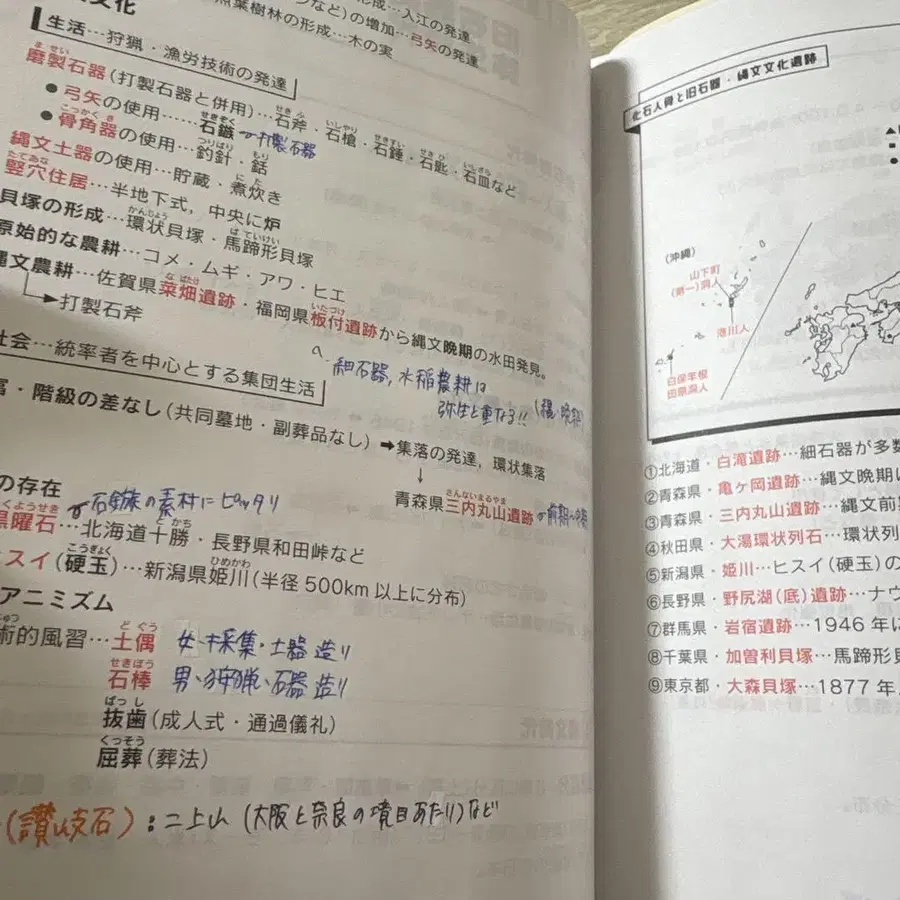 文化
形成…入江の発達
など)の増加…弓矢の発達
照葉樹林の形成…木の実
生活…狩猟・漁労技術の発達
磨製石器(打製石器と併用)…石斧・石槍・石錘・石匙・石皿など
●弓矢の使用……石鏃 打製石器
●骨角器の使用…釣針・銛
縄文土器の使用…貯蔵・煮炊き
竪穴住居…半地下式,中央に炉
貝塚の形成…環状貝塚・馬蹄形貝塚
原始的な農耕…コメ・ムギ・アワ・ヒエ
縄文農耕…佐賀県菜畑遺跡・福岡県板付遺跡から縄文晩期の水田発見。
→打製石斧
細石器,水稲農耕は
弥生と重なる!!
社会…統率者を中心とする集団生活
富・階級の差なし(共同墓地・副葬品なし)➡集落の発達,環状集落
↓
青森県三内丸山遺跡
の存在
石鏃の素材にピッタリ
黒曜石…北海道十勝・長野県和田峠など
ヒスイ(硬玉)…新潟県姫川(半径500km以上に分布)
アニミズム
術的風習…土偶 女…採集・土器造り
石棒 男…狩猟・石器造り
抜歯(成人式・通過儀礼)
屈葬(葬法)
(讃岐石):二上山(大阪と奈良の境目あたり)など
化石人骨と旧石器・縄文文化遺跡
(沖縄)
山下町
(第一)洞人
港川人
白保竿根
田原洞人
①北海道・白滝遺跡…細石器が多数
②青森県・亀ヶ岡遺跡…縄文晩期
③青森県・三内丸山遺跡…縄文前期
④秋田県・大湯環状列石…環状列
⑤新潟県・姫川…ヒスイ(硬玉)の
⑥長野県・野尻湖(底)遺跡…ナウ
⑦群馬県・岩宿遺跡…1946年に
⑧千葉県・加曽利貝塚…馬蹄形貝
⑨東京都・大森貝塚…1877年